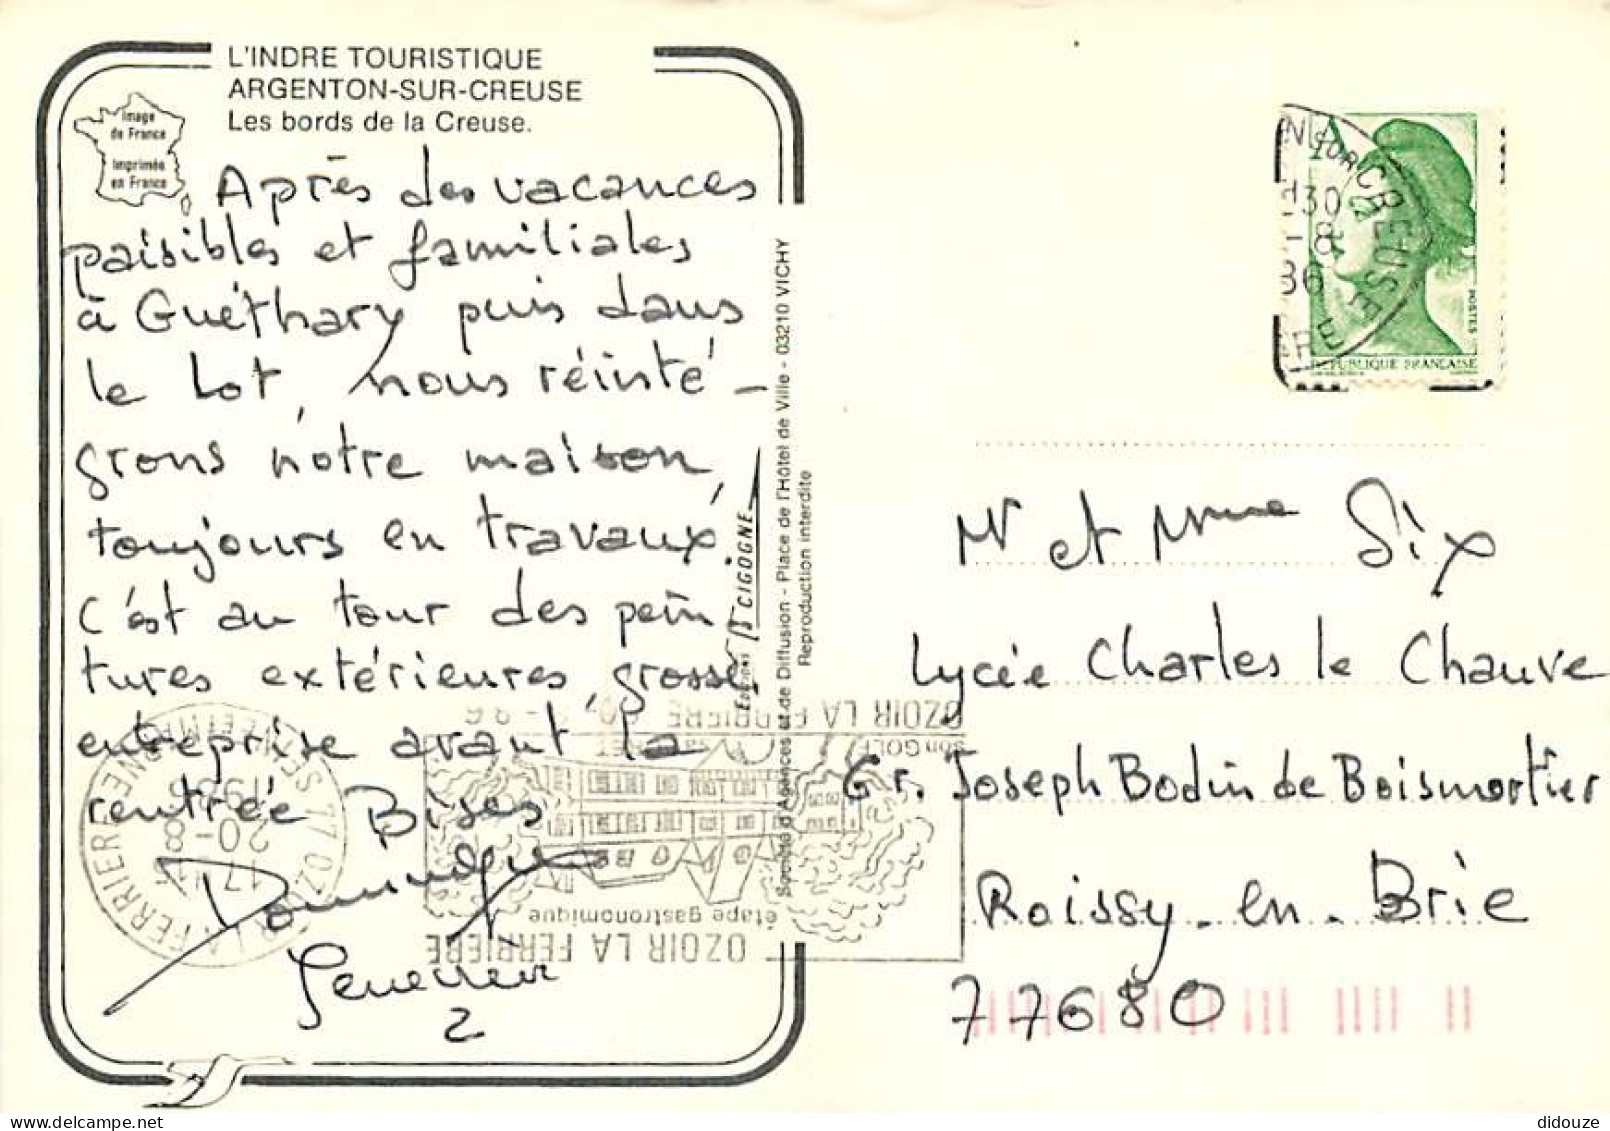 L'INDRE TOURISTIQUE
ARGENTON-SUR-CREUSE
Les bords de la Creuse.
Image
de France
Imprimée
en France
Après des vacances
paisibles et familiales
à Guéthary puis dans
le Lot, nous réinté-
grons notre maison,
toujours en travaux.
C'est au tour des pein
tures extérieures, grosse
entreprise avant la
rentrée Bises
Dominique
Geneviève
2
Editions LA CIGOGNE
Société d'Agences et de Diffusion - Place de l'Hôtel de Ville - 03210 VICHY
Reproduction interdite
N SUR CREUSE
H30
-8
86
RE
POSTES
REPUBLIQUE FRANÇAISE
Mr et Mme Six
Lycée Charles le Chauve
Gr. Joseph Bodin de Boismortier
Roissy-en-Brie
77680
OZOIR LA FERRIERE
étape gastronomique
son GOLF
OZOIR LA FERRIERE
17H
20-8
1986
didouze